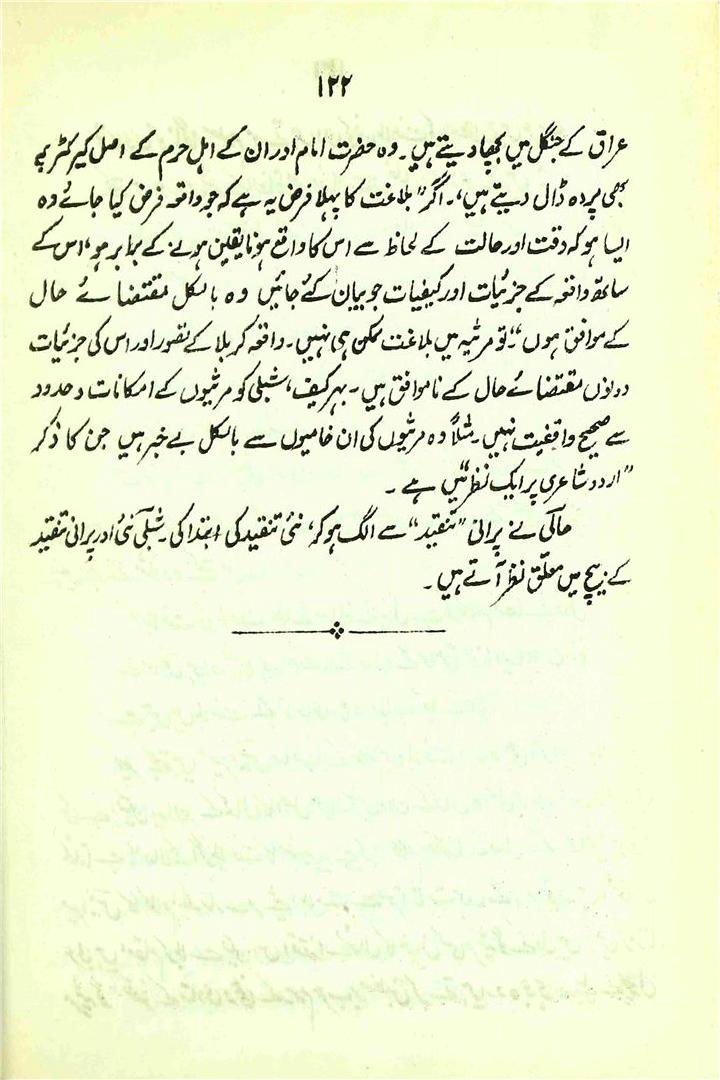 ۱۲۲
عراق کے جنگل میں بچھا دیتے ہیں۔ وہ حضرت امام اور ان کے اہل حرم کے اصل کیرکٹر پر
بھی پردہ ڈال دیتے ہیں،۔ اگر "بلاغت کا پہلا فرض یہ ہے کہ جو واقعہ فرض کیا جائے وہ
ایسا ہو کہ وقت اور حالت کے لحاظ سے اس کا واقع ہونا یقین ہونے کے برابر ہو، اس کے
ساتھ واقعہ کے جزئیات اور کیفیات جو بیان کئے جائیں وہ بالکل مقتضائے حال
کے موافق ہوں"۔ تو مرثیہ میں بلاغت ممکن ہی نہیں۔ واقعہ کربلا کے تصور اور اس کی جزئیات
دونوں مقتضائے حال کے ناموافق ہیں۔ بہر کیف، شبلی کو مرثیوں کے امکانات و حدود
سے صحیح واقفیت نہیں۔ مثلاً وہ مرثیوں کی ان خامیوں سے بالکل بے خبر ہیں جن کا ذکر
"اردو شاعری پر ایک نظر" میں ہے۔
حالی نے پرانی "تنقید" سے الگ ہو کر، نئی تنقید کی ابتدا کی۔ شبلی نئی اور پرانی تنقید
کے بیچ میں معلق نظر آتے ہیں۔